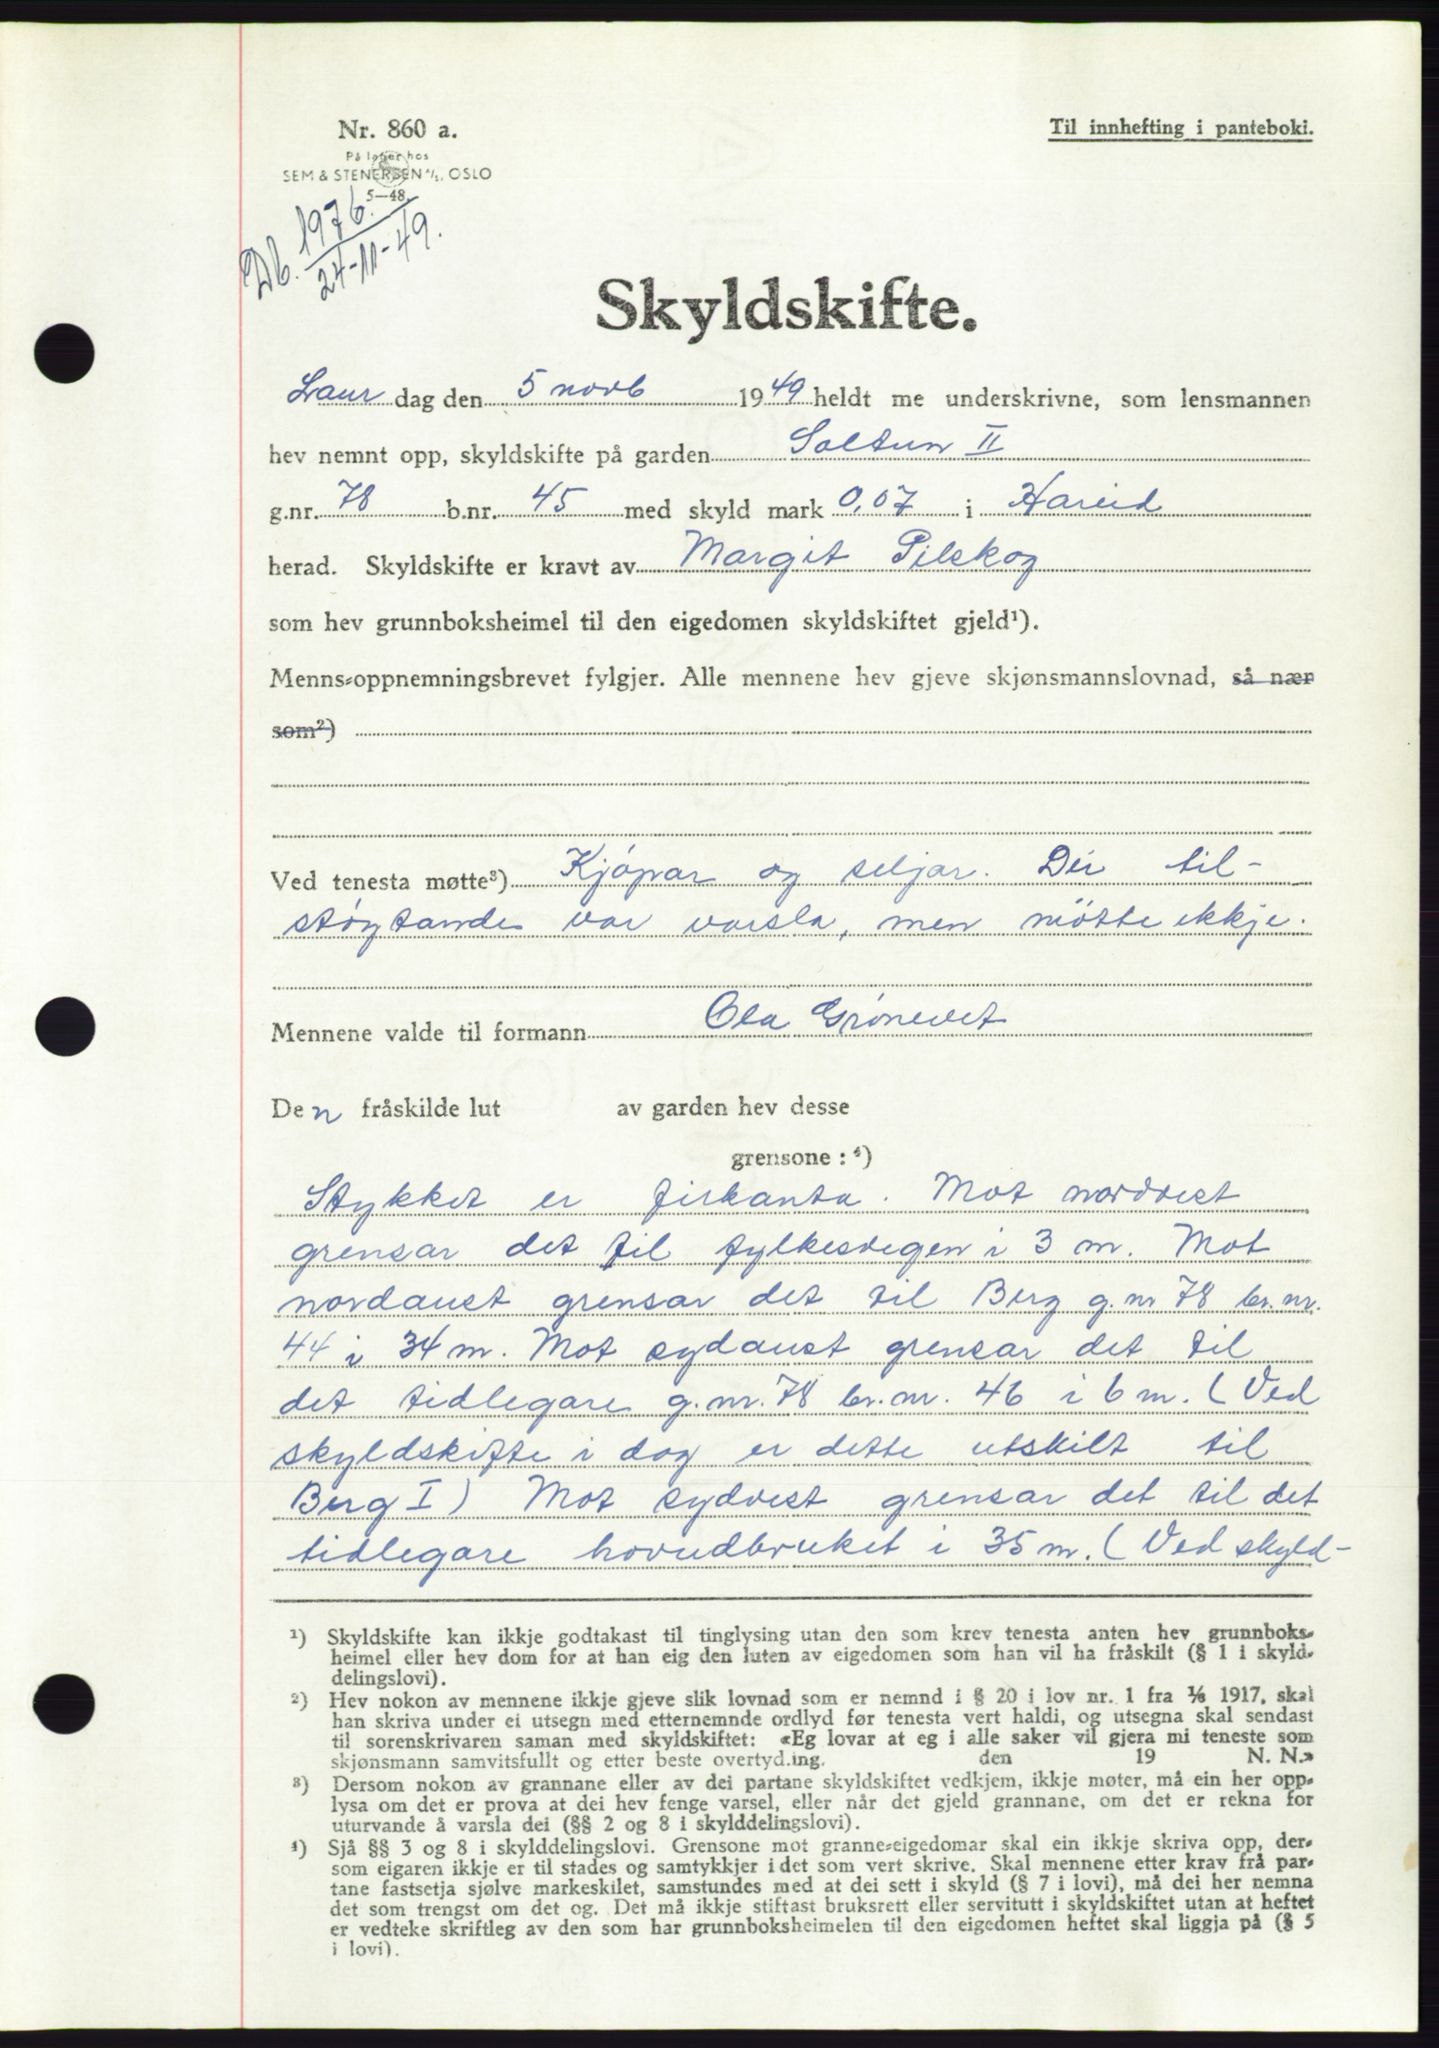 Nr. 860 a.
Til innhefting i panteboki.
På lager hos
SEM & STENERSEN A/S, OSLO
5—48.
Db. 1976.
24-11-49.
Skyldskifte.
Laur dag den 5 novb 1949 heldt me underskrivne, som lensmannen
hev nemnt opp, skyldskifte på garden Soltun II
g.nr. 78 b.nr. 45 med skyld mark 0,07 i Hareid
herad. Skyldskifte er kravt av Margit Pilskog
som hev grunnboksheimel til den eigedomen skyldskiftet gjeld¹).
Menns-oppnemningsbrevet fylgjer. Alle mennene hev gjeve skjønsmannslovnad, så nær
som²)
Ved tenesta møtte³) Kjópar og seljar. Dei til-
støytande var varsla, men mötte ikkje.
Mennene valde til formann Ola Grónevet
Den fråskilde lut av garden hev desse
grensone : ⁴)
Stykket er firkanta. Mot nordvest
grensar det til fylkesvegen i 3 m. Mot
nordaust grensar det til Berg g.nr 78 br.nr.
44 i 34 m. Mot sydaust grensar det til
det tidlegare g.nr. 78 br.nr. 46 i 6 m. (Ved
skyldskifte i dag er dette utskilt til
Berg I) Mot sydvest grensar det til det
tidlegare hovudbruket i 35 m. (Ved skyld-
¹) Skyldskifte kan ikkje godtakast til tinglysing utan den som krev tenesta anten hev grunnboks-
heimel eller hev dom for at han eig den luten av eigedomen som han vil ha fråskilt (§ 1 i skyld-
delingslovi).
²) Hev nokon av mennene ikkje gjeve slik lovnad som er nemnd i § 20 i lov nr. 1 fra ⅙ 1917, skal
han skriva under ei utsegn med etternemnde ordlyd før tenesta vert haldi, og utsegna skal sendast
til sorenskrivaren saman med skyldskiftet: «Eg lovar at eg i alle saker vil gjera mi teneste som
skjønsmann samvitsfullt og etter beste overtyd.ing. den 19 N. N.»
³) Dersom nokon av grannane eller av dei partane skyldskiftet vedkjem, ikkje møter, må ein her opp-
lysa om det er prova at dei hev fenge varsel, eller når det gjeld grannane, om det er rekna for
uturvande å varsla dei (§§ 2 og 8 i skylddelingslovi).
⁴) Sjå §§ 3 og 8 i skylddelingslovi. Grensone mot granne-eigedomar skal ein ikkje skriva opp, der-
som eigaren ikkje er til stades og samtykkjer i det som vert skrive. Skal mennene etter krav frå par-
tane fastsetja sjølve markeskilet, samstundes med at dei sett i skyld (§ 7 i lovi), må dei her nemna
det som trengst om det og. Det må ikkje stiftast bruksrett eller servitutt i skyldskiftet utan at heftet
er vedteke skriftleg av den som har grunnboksheimelen til den eigedomen heftet skal liggja på (§ 5
i lovi).